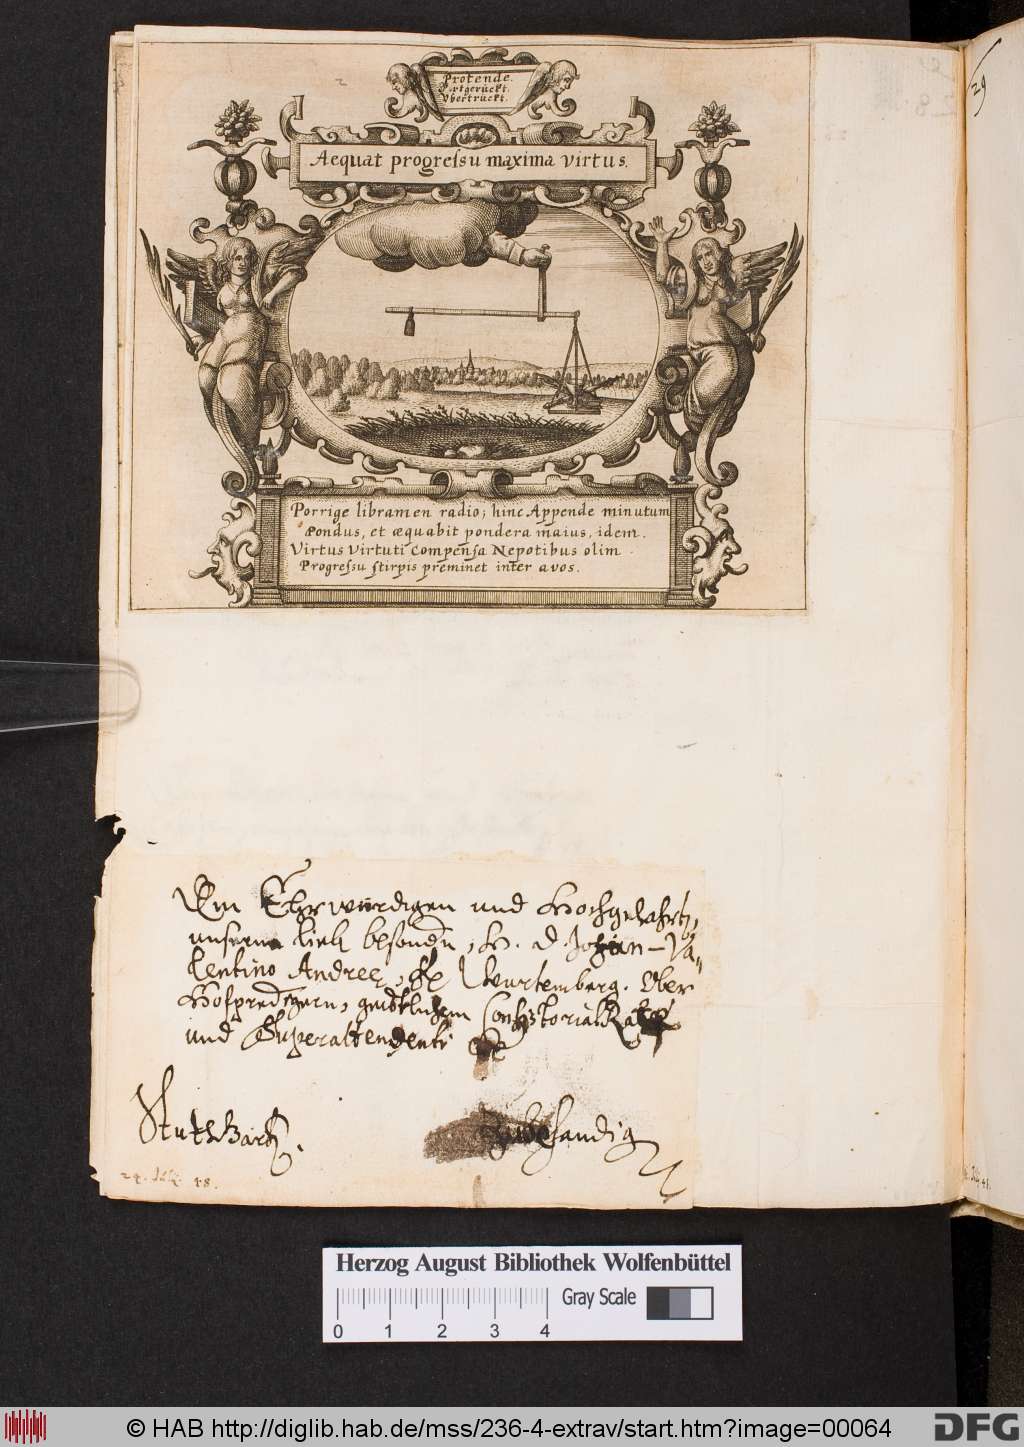 Protende.
Vbertruckt.
Aequat progreſsu maxima virtus.
Porrige libramen radio; hinc Appende minutum
Pondus, et æquabit pondera maius, idem.
Virtus Virtuti compenſa Nepotibus olim
Progreſsu ſtirpis preminet inter avos.
29
Dem Ehrwürdigen und Hochgelahrten,
unserm lieb besondern, H. D. Johan-Va-
lentino Andreæ, Wurtemberg. Ober
Hofpredigern, geistlichem Consistorial Rath
und Superattendenti
Stutgart.
24. Julij. 48.
Herzog August Bibliothek Wolfenbüttel
Gray Scale
0 1 2 3 4
© HAB http://diglib.hab.de/mss/236-4-extrav/start.htm?image=00064
DFG